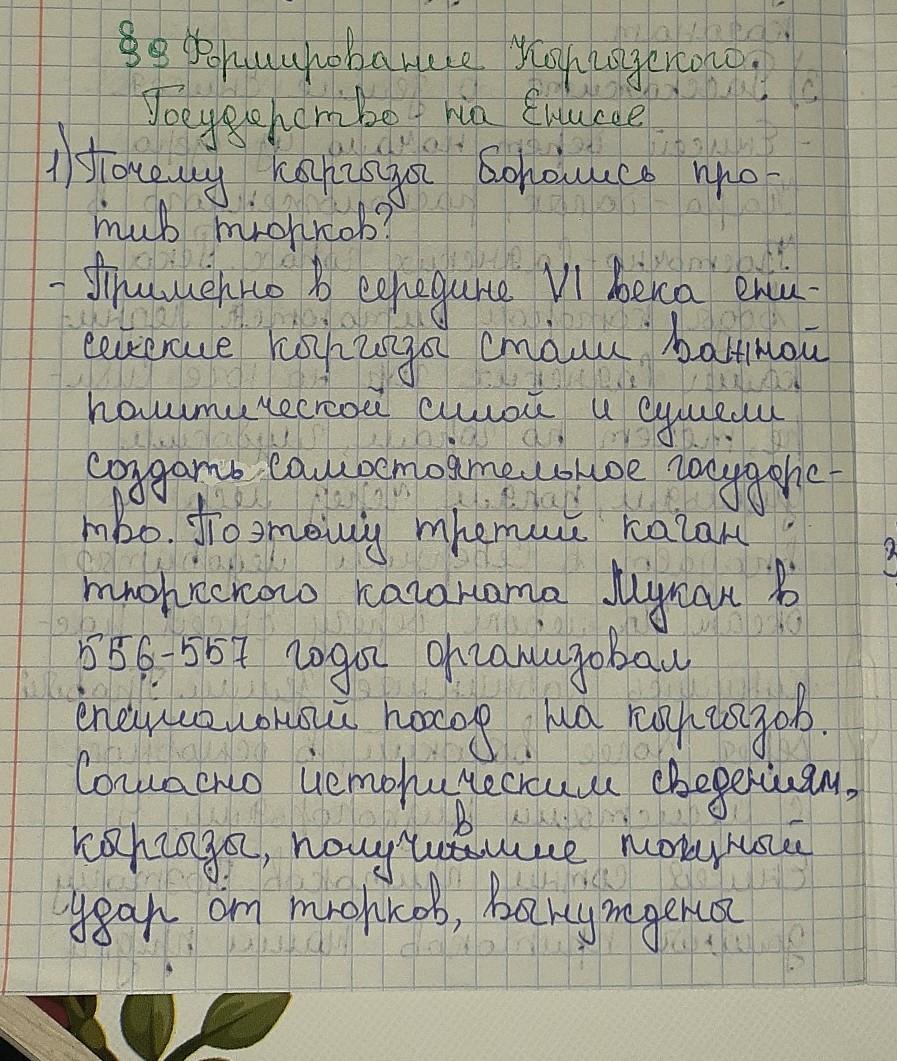 §9 Формирование Кыргызского
Государство на Енисее
1) Почему кыргызы боролись про-
тив тюрков?
- Примерно в середине VI века ени-
сейские кыргызы стали важной
политической силой и сумели
создать самостоятельное государс-
тво. Поэтому третий каган
тюркского каганата Мукан в
556-557 годы организовал
специальный поход на кыргызов.
Согласно историческим сведениям,
кыргызы, получившие мощный
удар от тюрков, вынуждены